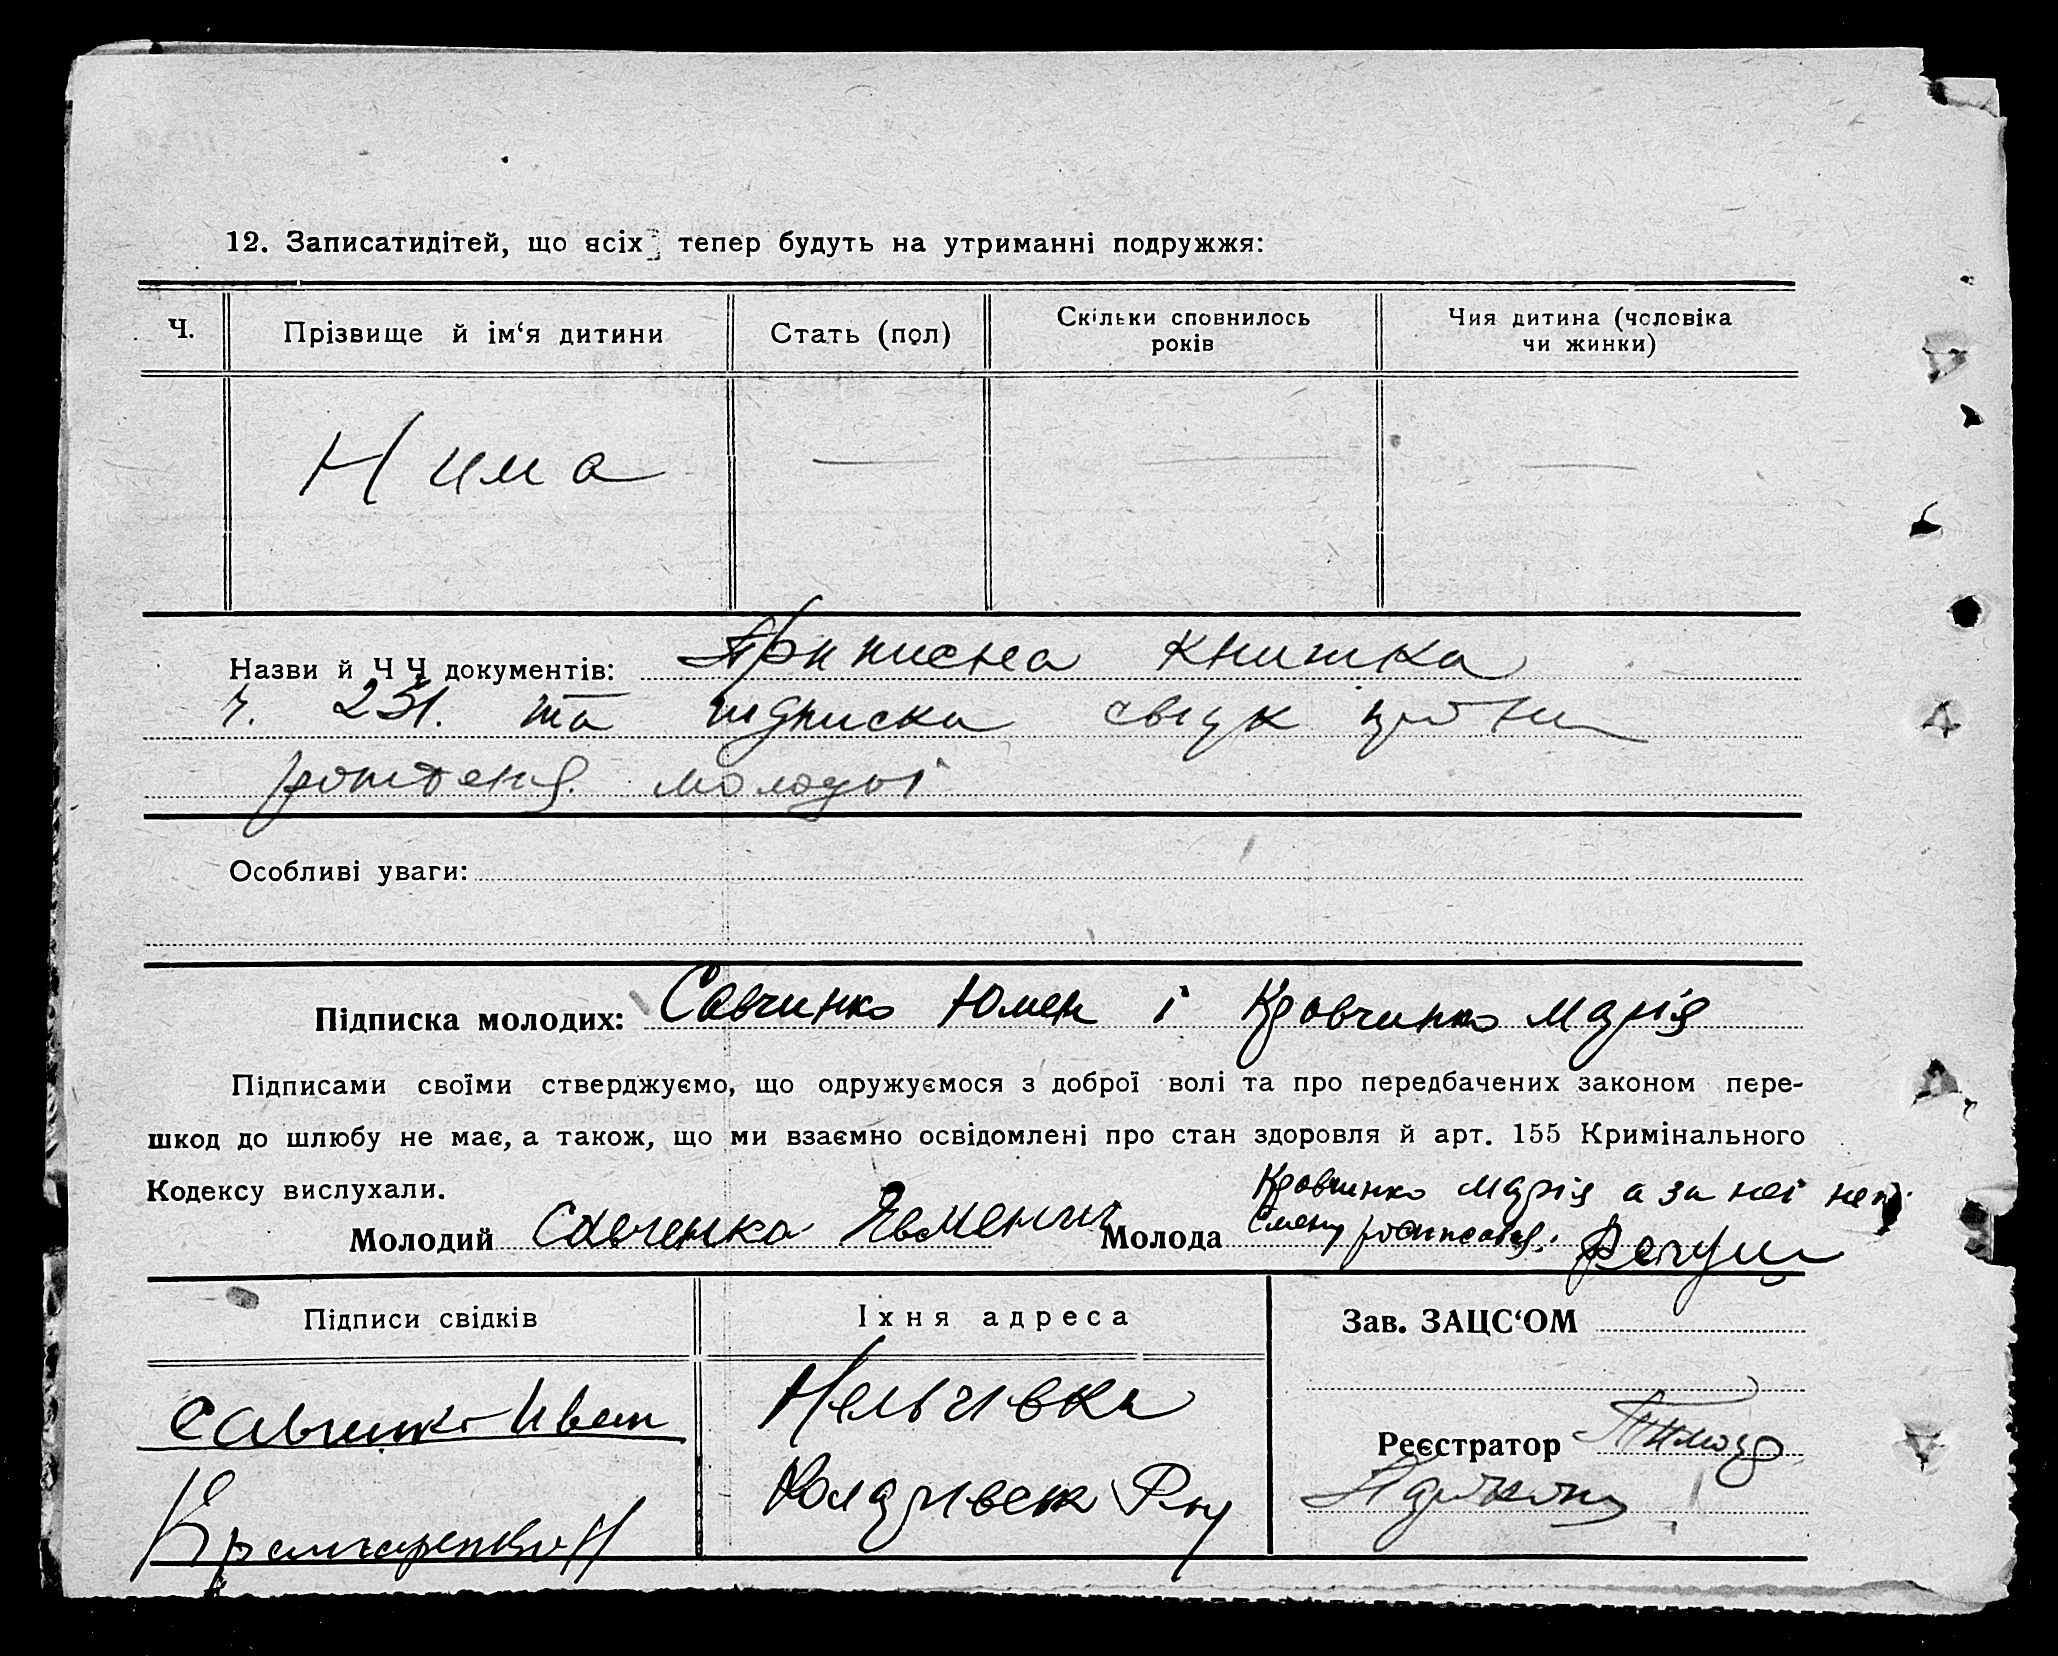 12. Записатидітей, що всіх тепер будуть на утриманні подружжя:
Ч.
Прізвище й ім‘я дитини
Стать (пол)
Скільки сповнилось
років
Чия дитина (чоловіка
чи жинки)
Нима — — —
Назви й Ч Ч документів: Приписна книжка
ч. 231. та підписка
молодої
Особливі уваги:
Підписка молодих: Савчинко Юмен і Кравчинко Марія
Підписами своїми стверджуємо, що одружуємося з доброї волі та про передбачених законом пере-
шкод до шлюбу не має, а також, що ми взаємно освідомлені про стан здоровля й арт. 155 Кримінального
Кодексу вислухали.
Молодий Савченко
Молода Кравчинко Марія а за неї
Підписи свідків
Їхня адреса
Зав. ЗАЦС‘ОМ
Савчинко Иван
Нельгівка
Реєстратор